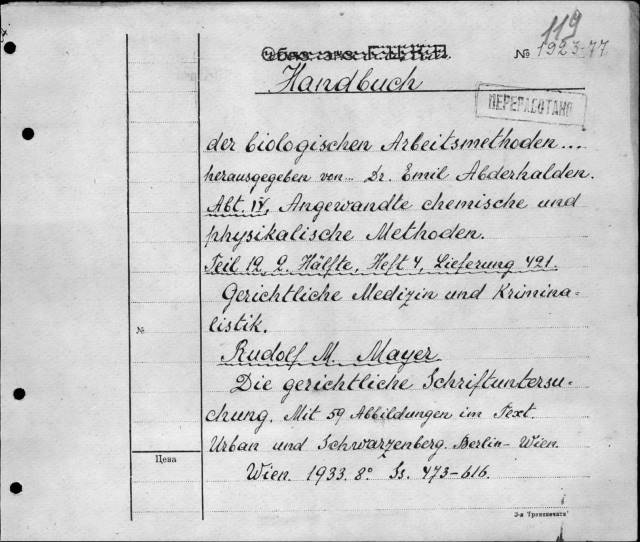 119
№ 1923-77
Handbuch
ПЕРЕРАБОТАНО
der biologischen Arbeitsmethoden...
herausgegeben von... Dr. Emil Abderhalden.
Abt. IV, Angewandte chemische und
physikalische Methoden.
Teil 12, 2. Hälfte, Heft 4, Lieferung 421.
Gerichtliche Medizin und Krimina-
listik.
№
Rudolf M. Mayer.
Die gerichtliche Schriftuntersu-
chung. Mit 59 Abbildungen im Text.
Urban und Schwarzenberg. Berlin-Wien.
Цена
Wien. 1933. 8° Ss. 473-616.
3-я Транспечати